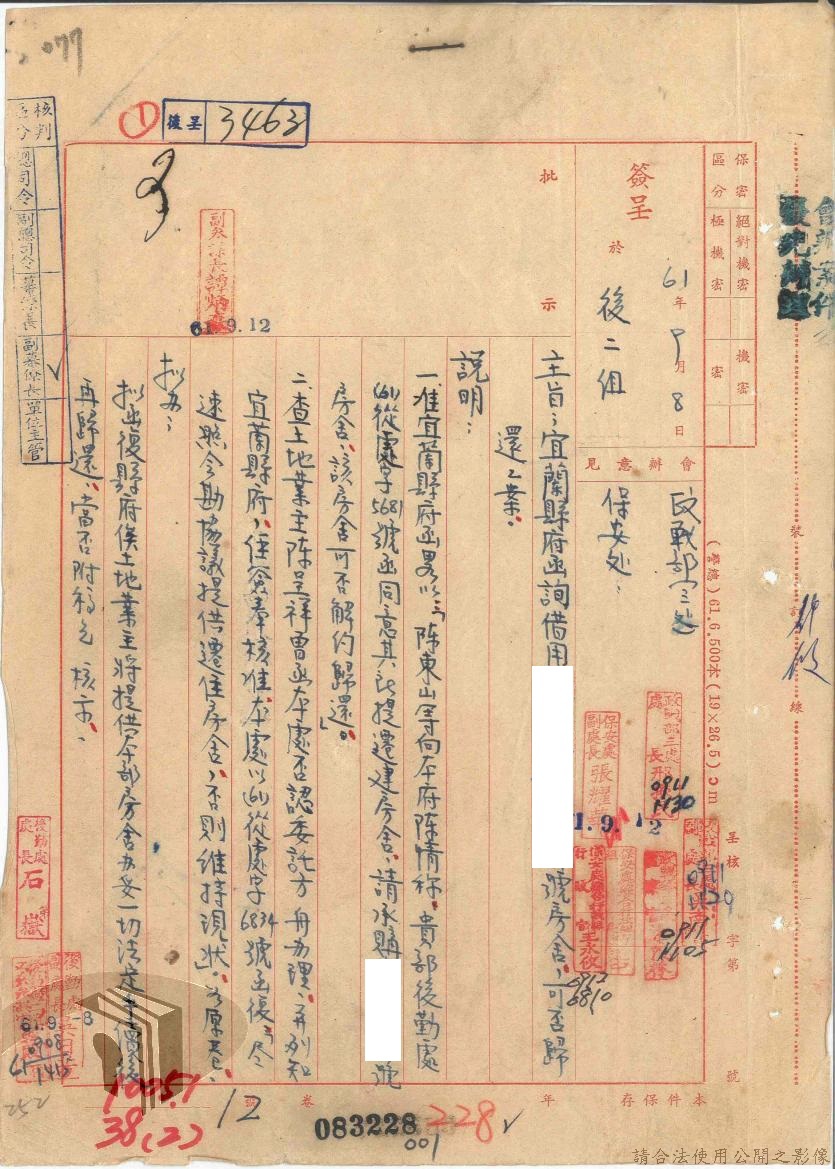 077
① 後呈 3463
核判區分 總司令 副總司令 參謀長 副參謀長 單位主管
保密區分 絕對機密 極機密 機密 密
簽呈 於 後二組
61年9月8日
批示
61.9.12
會辦意見
政戰部三处
保安处:
主旨:宜蘭縣府函詢借用 號房舍,可否歸
還乙案。
說明:
一、准宜蘭縣府函畧以:「陈東山等向本府陈情称,貴部後勤處
(61)從處字5681號函同意其託提遷建房舍,請承購 號
房舍,該房舍可否解約歸還」。
二、查土地業主陈呈祥曾函本處否認委託方舟办理,並副知
宜蘭縣府,任簽奉核准,本處以(61)從處字6834號函復:「尽
速照会勘協議提供遷住房舍,否則維持現狀」 原卷。
拟办:
拟函復縣府俟土地業主將提供本部房舍办妥一切法定手續後
再歸還,當否附稿乞 核示。
裝訂線
(彝德)61.6.500本(19×26.5)cm
呈核 字第 號
本件保存 年
卷 號 12
保安處副處長張耀華
61.9.12
0911 1130
0911 1129
0911 1105
0912 0810
後勤處處長石嶽
61.9.-8
0908 1415
1005.1
38(2)
252
083228
228
001
請合法使用公開之影像